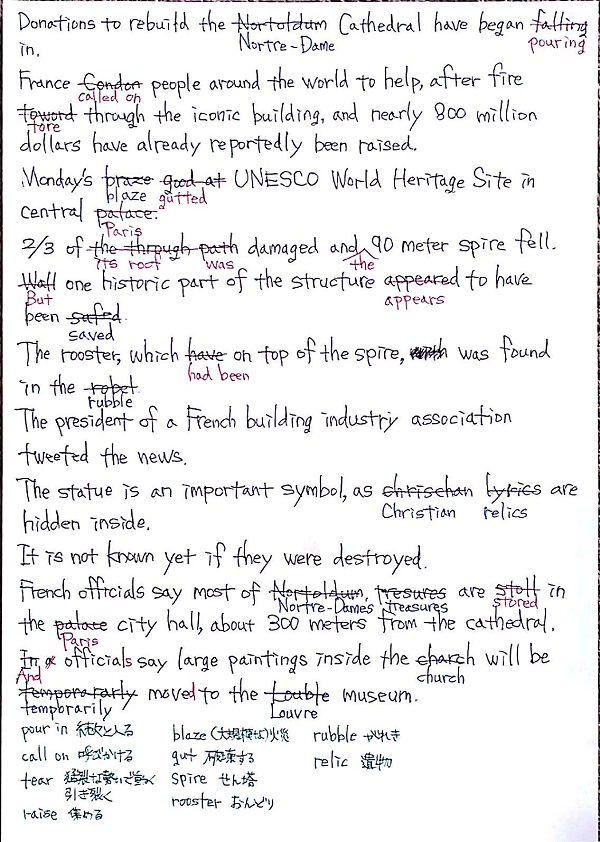 Donations to rebuild the Nortoldum Cathedral have began falling
Nortre-Dame pouring
in.
France London people around the world to help, after fire
called on
toword through the iconic building, and nearly 800 million
tore
dollars have already reportedly been raised.
Monday's braze good at UNESCO World Heritage Site in
blaze gutted
central palace.
Paris
2/3 of the through path damaged and 90 meter spire fell.
its roof was the
Wall one historic part of the structure appeared to have
But appears
been safed.
saved
The rooster, which have on top of the spire, was found
had been
in the robet.
rubble
The president of a French building industry association
tweeted the news.
The statue is an important symbol, as chrischan lyrics are
Christian relics
hidden inside.
It is not known yet if they were destroyed.
French officials say most of Nortoldum, tresures are stoll in
Nortre-Dames treasures stored
the palace city hall, about 300 meters from the cathedral.
Paris
In officials say large paintings inside the charch will be
And church
temporararly moved to the Louble museum.
temprbrarily Louvre
pour in 続々と入る blaze (大規模な)火災 rubble がれき
call on 呼びかける gut 破壊する relic 遺物
tear 猛烈な勢いで Spire せん塔
引き裂く rooster おんどり
raise 集める